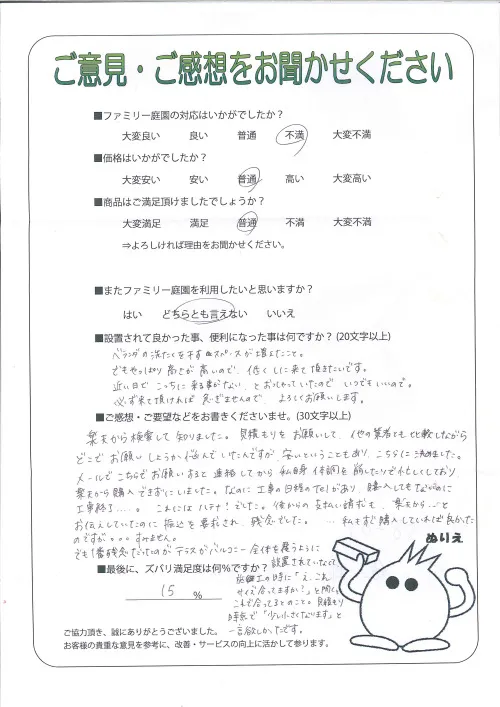 ご意見・ご感想をお聞かせください
■ファミリー庭園の対応はいかがでしたか？
大変良い 良い 普通 不満 大変不満
■価格はいかがでしたか？
大変安い 安い 普通 高い 大変高い
■商品はご満足頂けましたでしょうか？
大変満足 満足 普通 不満 大変不満
⇒よろしければ理由をお聞かせください。
■またファミリー庭園を利用したいと思いますか？
はい どちらとも言えない いいえ
■設置されて良かった事、便利になった事は何ですか？(20文字以上)
ベランダの洗たくを干すスペースが増えたこと。
でもやっぱり高さが高いので、低くしに来て頂きたいです。
近い日で こっちに来る事がない、とおっしゃっていたので いつでもいいので。
必ず来て頂ければ 急ぎませんので、よろしくお願いします。
■ご感想・ご要望などをお書きくださいませ。(30文字以上)
楽天から検索して知りました。見積もりをお願いして、他の業者とも比較しながら
どこでお願いしようか悩んでいたんですが、安いということもあり、こちらに決めました。
メールでこちらでお願いすると連絡してから私自身 体調を崩したりで忙しくしており
楽天から購入できずにいました。なのに 工事の日程のTelがあり、購入してもないのに
工事終了‥‥。これには ハテナ？でした。後からの支払い請求も、楽天から‥と
お伝えしていたのに 振込を要求され、残念でした。…私もすぐ購入していれば良かった
のですが。。。すみません。
でも1番残念だったのが テラスがバルコニー全体を覆うように
設置されていなくて
施工の時に「え、これ
サイズ合ってますか？」と聞くと
これで合ってるとのこと。見積もり
時点で「少し小さくなります」と
一言欲しかったです。
ぬりえ
■最後に、ズバリ満足度は何％ですか？
15 %
ご協力頂き、誠にありがとうございました。
お客様の貴重な意見を参考に、改善・サービスの向上に活かして参ります。